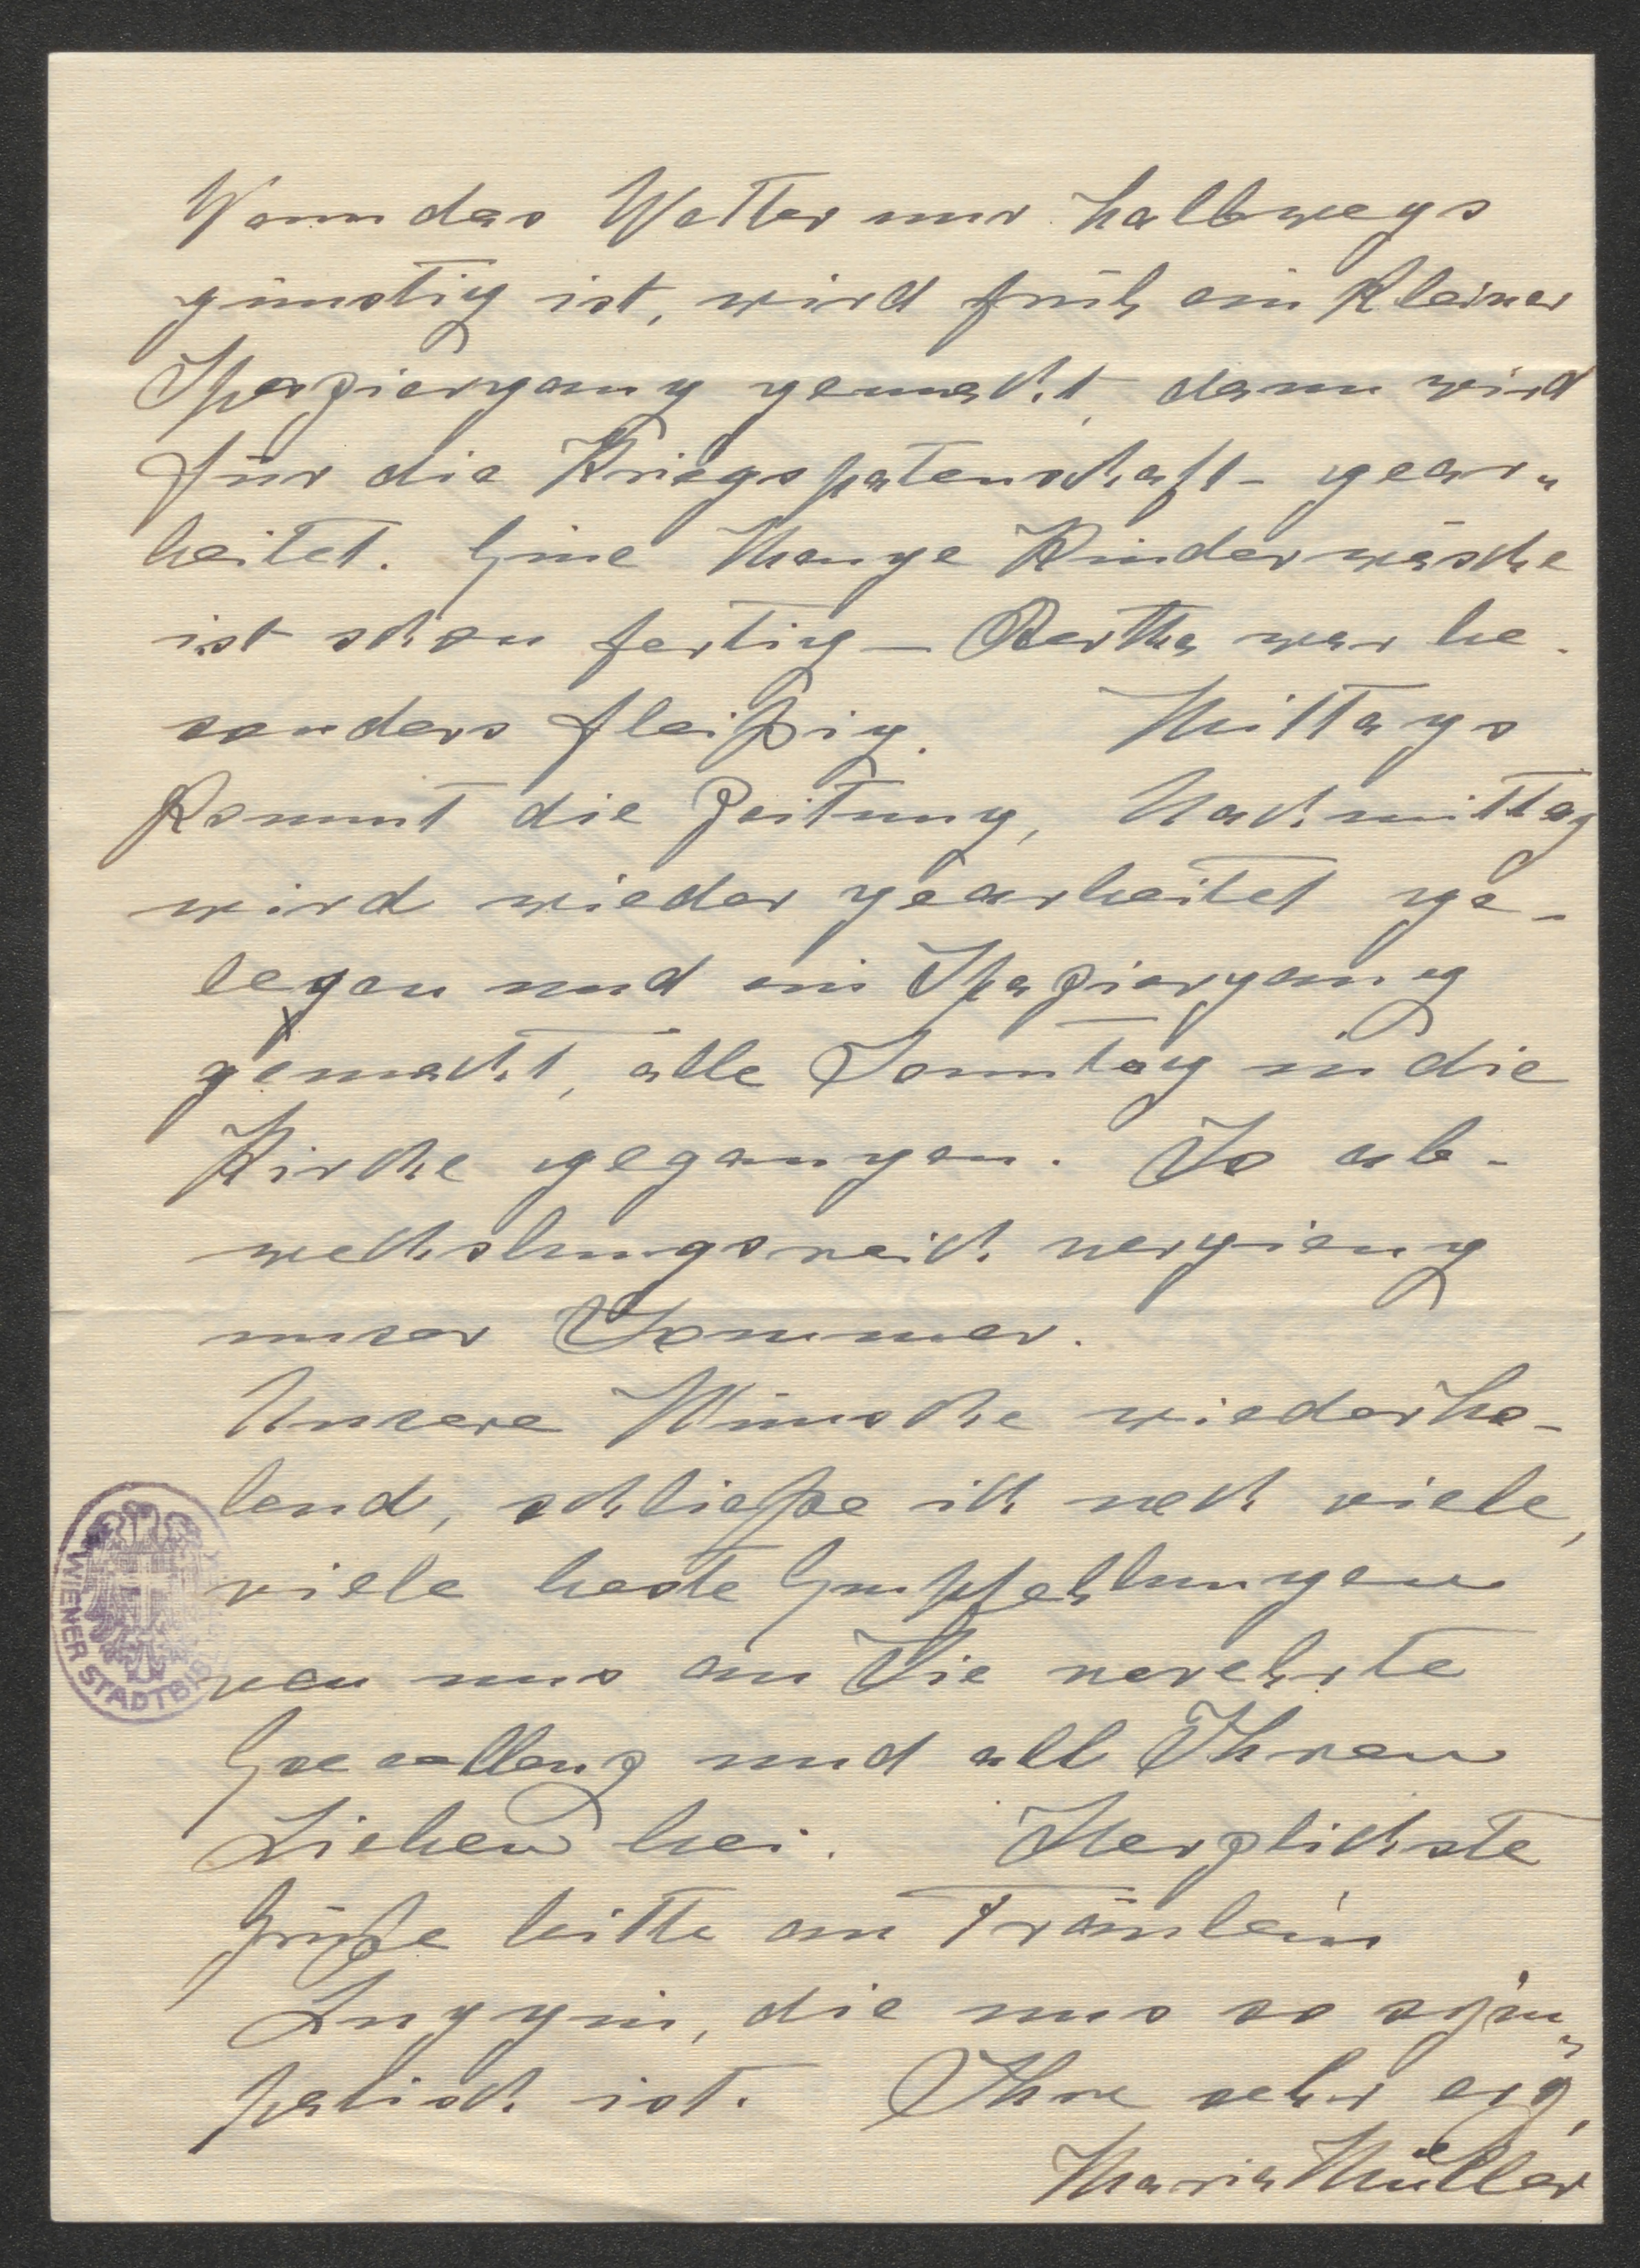 Wenn das Wetter nur halbwegs
günstig ist, wird früh ein kleiner
Spaziergang gemacht, dann wird
für die Kriegspatenschaft gear„
beitet. Eine Menge Kinderwäsche
ist schon fertig – Bertha war be-
sonders fleißig. Mittags
kommt die Zeitung, Nachmittag
wird wieder gearbeitet ge-
legen und ein Spaziergang
gemacht, alle Sonntag in die
Kirche gegangen. So ab-
wechslungsreich vergieng
unser Sommer.
Unsere Wünsche wiederho-
lend, schließe ich noch viele,
viele beste Empfehlungen
von uns an Sie verehrte
Excellenz und all Ihren
Lieben bei. Herzlichste
Grüße bitte an Fräulein
die uns so sym„
patisch ist. Ihre sehr erg.
Maria Müller
WIENER STADTBIBLIOTHEK